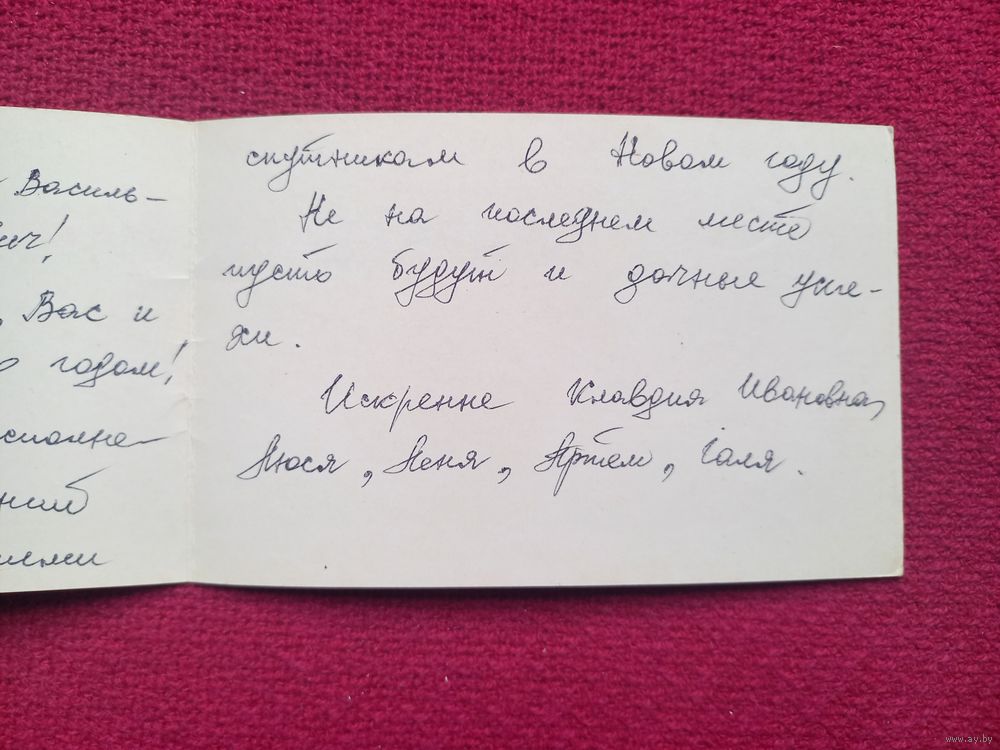 Василь-
ич!
Вас и
годом!
сполне-
ний
ыми
спутникам в Новом году.
Не на последнем месте
пусть будут и дачные успе-
хи.
Искренне Клавдия Ивановна,
Люся, Леня, Артем, Галя.
www.ay.by